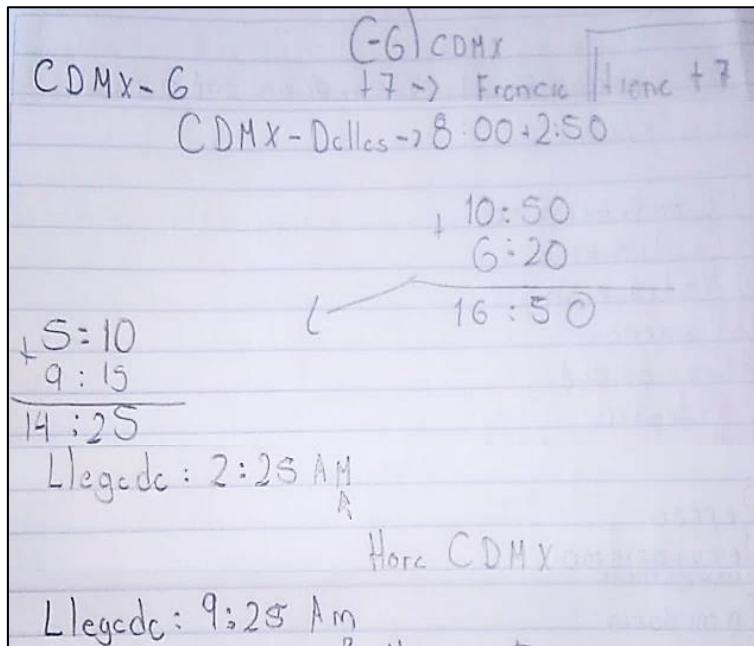 (-6) CDMX
CDMX - 6
+7 -> Francia Hora + 7
CDMX - Dallas -> 8:00 + 2:50
10:50
+ 6:20
16:50
5:10
+ 9:15
14:25
Llegada: 2:25 AM
Hora CDMX
Llegada: 9:25 Am